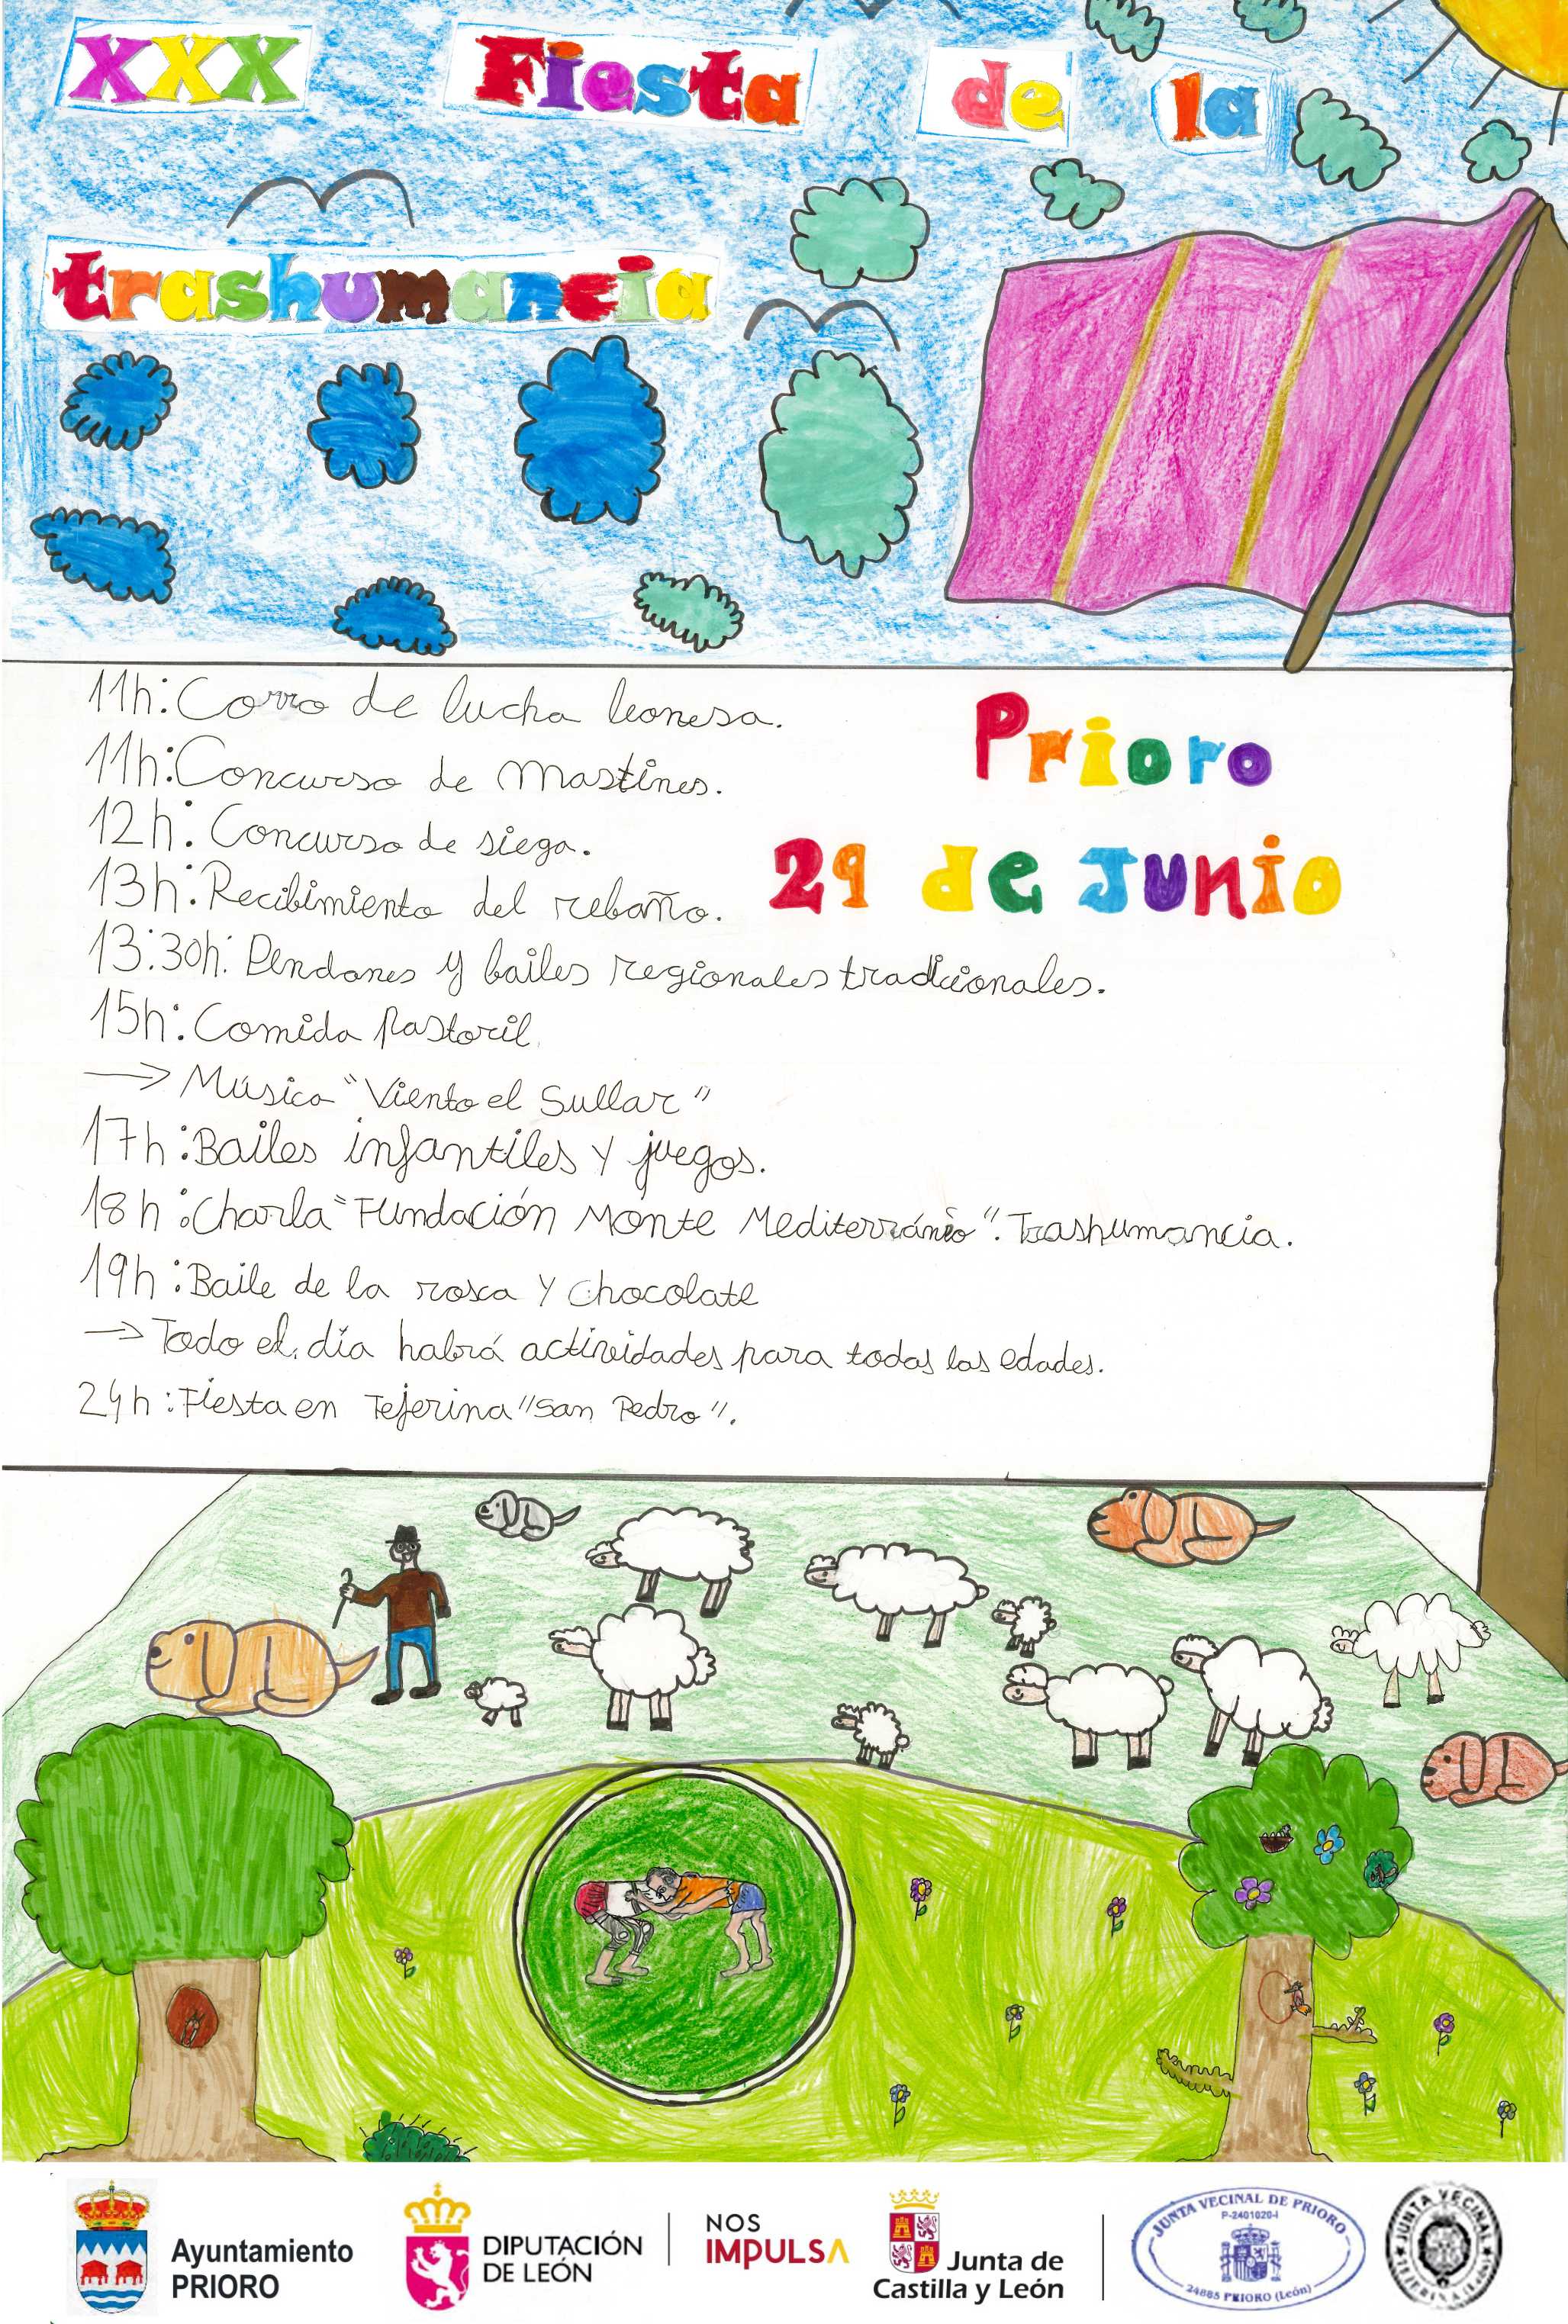 XXX Fiesta de la
trashumancia
11h: Corro de lucha leonesa.
11h: Concurso de Mastines.
12h: Concurso de siega.
13h: Recibimiento del rebaño.
13:30h: Pendones y bailes regionales tradicionales.
15h: Comida Pastoril
→ Música "Viento el Sullar"
17h: Bailes infantiles y juegos.
18h: Charla "Fundación Monte Mediterránio". Trashumancia.
19h: Baile de la rosca y chocolate
→ Todo el día habrá actividades para todas las edades.
24h: Fiesta en Tejerina "San Pedro".
Prioro
29 de Junio
Ayuntamiento
PRIORO
DIPUTACIÓN
DE LEÓN
NOS
IMPULSA
Junta de
Castilla y León
JUNTA VECINAL DE PRIORO
P-2401020-I
24885 PRIORO (León)
JUNTA VECINAL
TEJERINA (León)